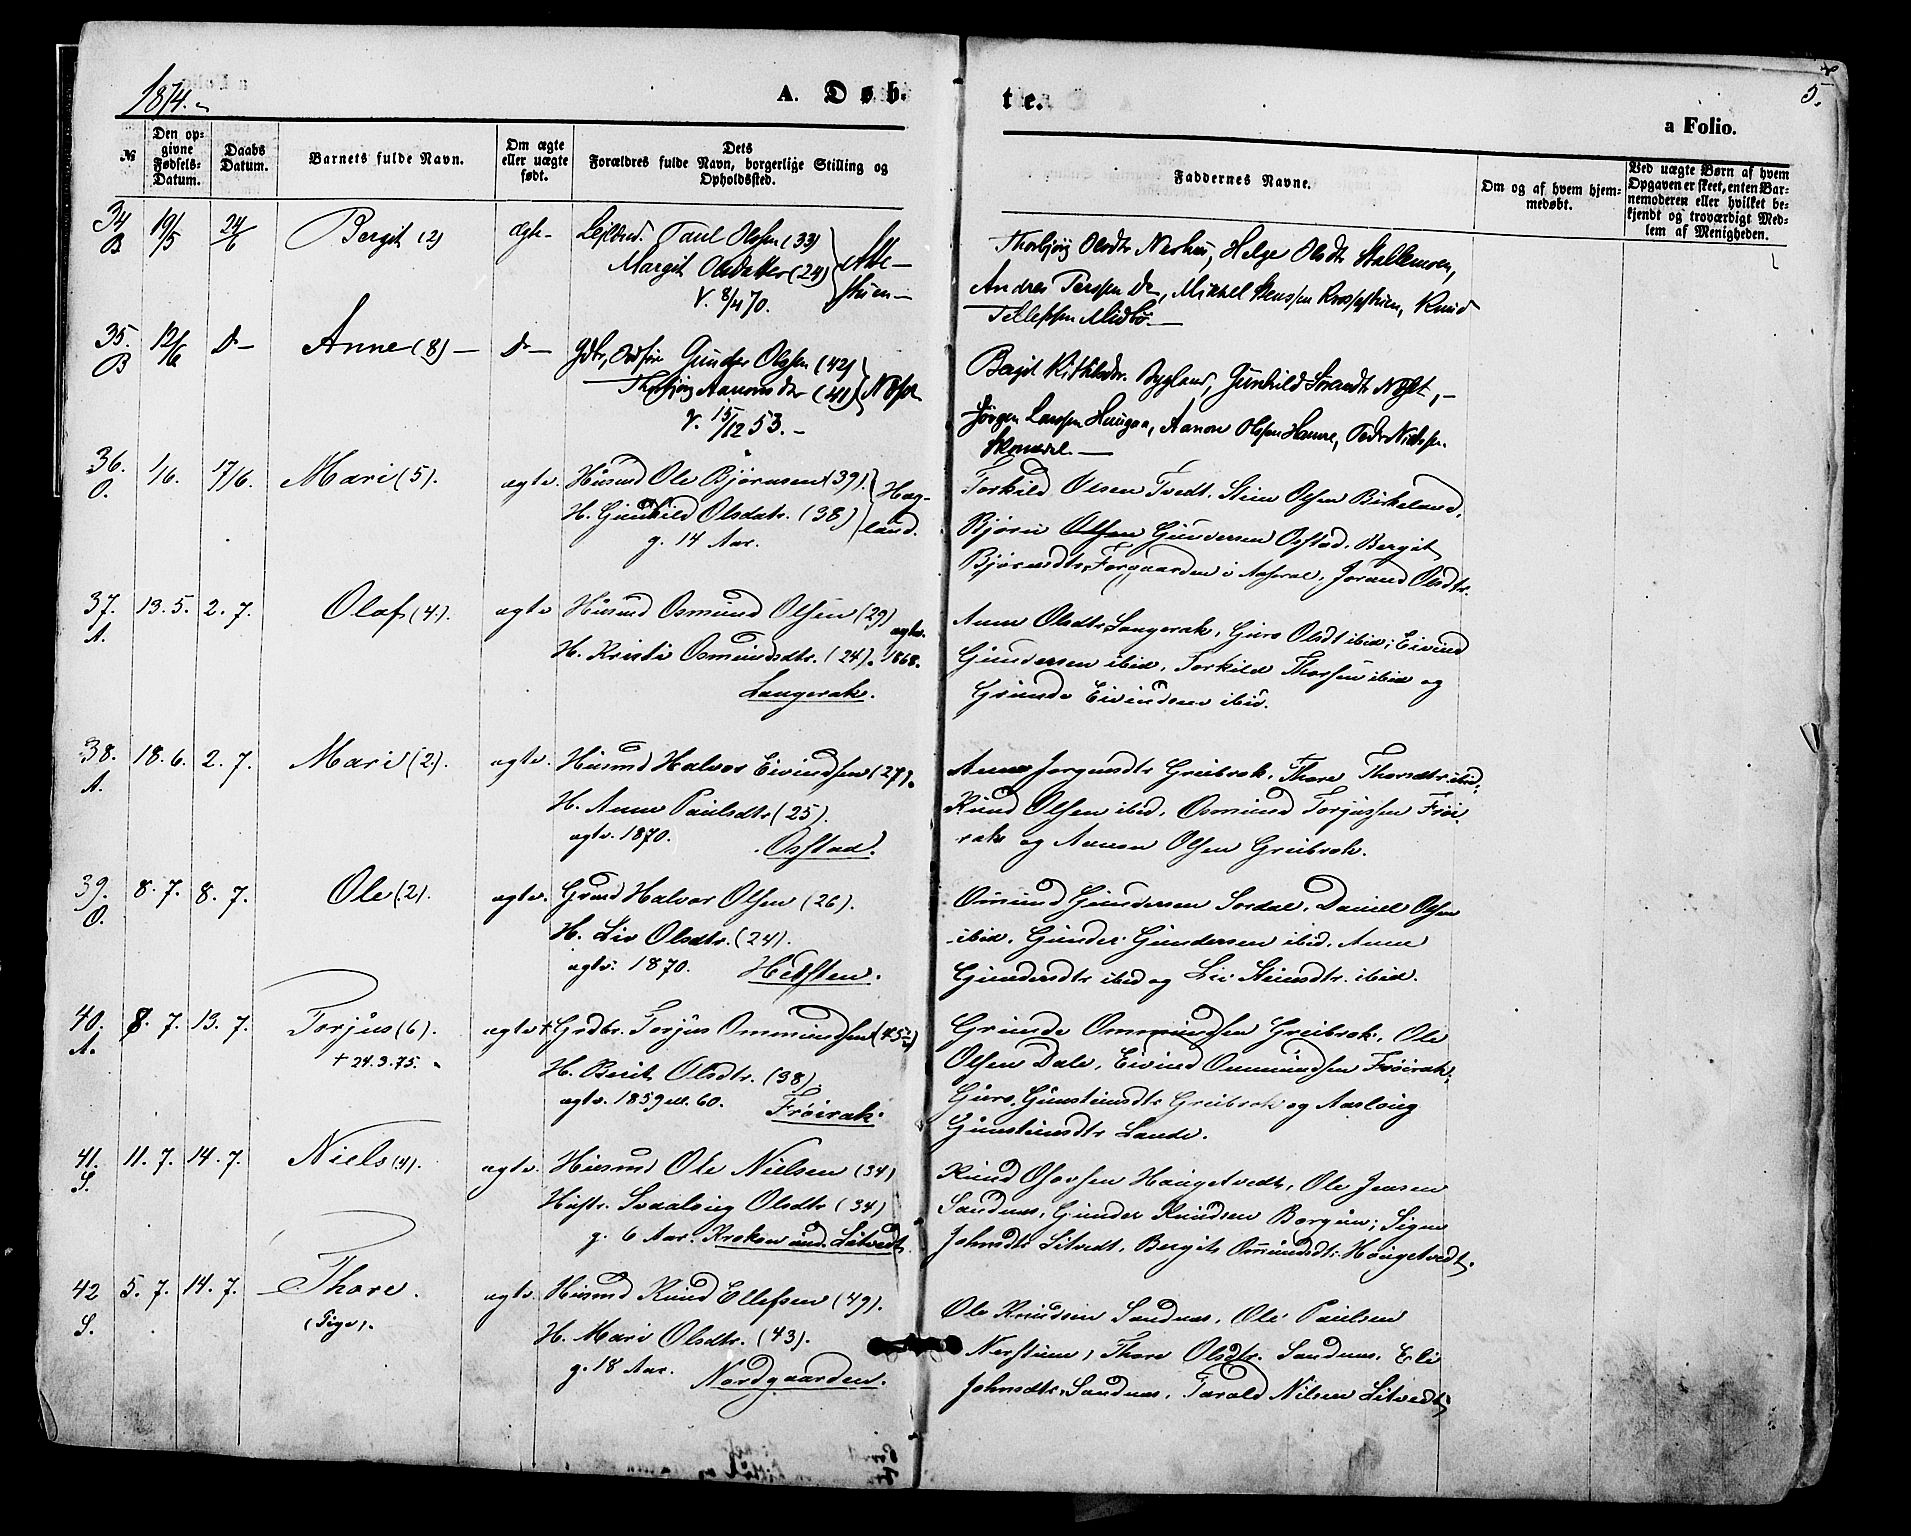 1874.
A. Døb-
te.
5.
a Folio.
№
Den op-
givne
Fødsels-
Datum.
Daabs
Datum.
Barnets fulde Navn.
Om ægte
eller uægte
født.
Dets
Forældres fulde Navn, borgerlige Stilling og
Opholdssted.
Faddernes Navne.
Om og af hvem hjem-
medøbt.
Ved uægte Børn af hvem
Opgaven er skeet, enten Bar-
nemoderen eller hvilket be-
kjendt og troværdigt Med-
lem af Menigheden.
34 B 19/5 24/6 Bergit (2) ægte- Paul Olssen (33)
Margit Olsdatter (24)
V. 8/4 70.
Thorbjørg Olsdtr Helge Olsdtr
Andres Knud
Tellefsen Midbø
35. B 12/6 D- Anne (8) - D- Gunder Olssen (42)
Thorbjørg Aanonsdtr (41)
V. 15/12 53. -
Bergit Bygland, Gunhild
Jørgen Larssen Haugaa, Aanon Olssen
36. O. 1/6. 17/6. Mari (5). ægte. Husmd Ole Bjørnsen (39). Hag-
H. Gunhild Olsdatr. (38) land.
g. 14 Aar.
Torkild Olsen Tvedt, Stein Olsen Birkeland,
Bjørn Olsen Gundersen Osstad, Bergit
Bjørnsdtr. i Aaseral, Jorand Olsdtr.
37. A. 13. 5. 2. 7. Olaf (4). ægte Husmd Osmund Olsen (29) ægtv.
H. Kristi Osmundsdtr. (24). 1868.
Langerak.
Anne Olsdtr Langerak, Guro Olsdt ibid; Eivind
Gundersen ibid, Torkild Thorsen ibid og
Grunde Eivindsen ibid.
38. A. 18. 6. 2. 7. Mari (2). ægte. Husmd Halvor Eivindsen (27).
H. Anne Paulsdtr (25).
ægtv. 1870. Osstad.
Anne Jørgensdtr Greibrok, Thore Thorsdtr ibid,
Knud Olsen ibid, Osmund Torjussen Frøi-
rak og Aanon Olsen Greibrok.
39. O. 8. 7. 8. 7. Ole (2). ægte. Halvor Olsen (26).
H. Liv Olsdtr. (24).
ægtv: 1870.
Omund Gundersen Sordal, Daniel Olsen
ibid, Gunder Gundersen ibid, Anne
Gundersdtr ibid og Liv ibid.
40. A. 8. 7. 13. 7. Torjus (6). ægte Grdbr. Torjus Ommundsen
+ 24.3.75.
H. Berit Olsdtr. (38).
ægtv. 1859 el. 60. Frøirak.
Grunde Ommundsen Greibrok, Ole
Olsen Dale, Eivind Ommundsen Frøirak,
Guro Gunsteinsdtr Greibrok og Aasloug
Gunsteinsdtr Lande.
41. S. 11. 7. 14. 7. Niels (4). ægte. Husmd Ole Nielsen (34)
Hustr. Svaaloug Olsdtr (34)
g. 6 Aar. Kroken und. Litvedt
Knud Haugetvedt, Ole Jensen
Sandnes, Gunder Knudsen Borgen; Signe
Johnsdtr Litvedt, Bergit Omundsdtr. Haugetvedt.
42 S. 5. 7. 14. 7. Thore. ægte. Husmd Knud Ellefsen (49).
(Pige).
H. Mari Olsdtr. (43).
g. 18 Aar. Nordgaarden.
Ole Knudsen Sandnes, Ole Paulsen
Nerstuen, Thore Olsdtr. Sandnes, Eli
Johnsdtr Sandnes, Tarald Nilsen Litvedt